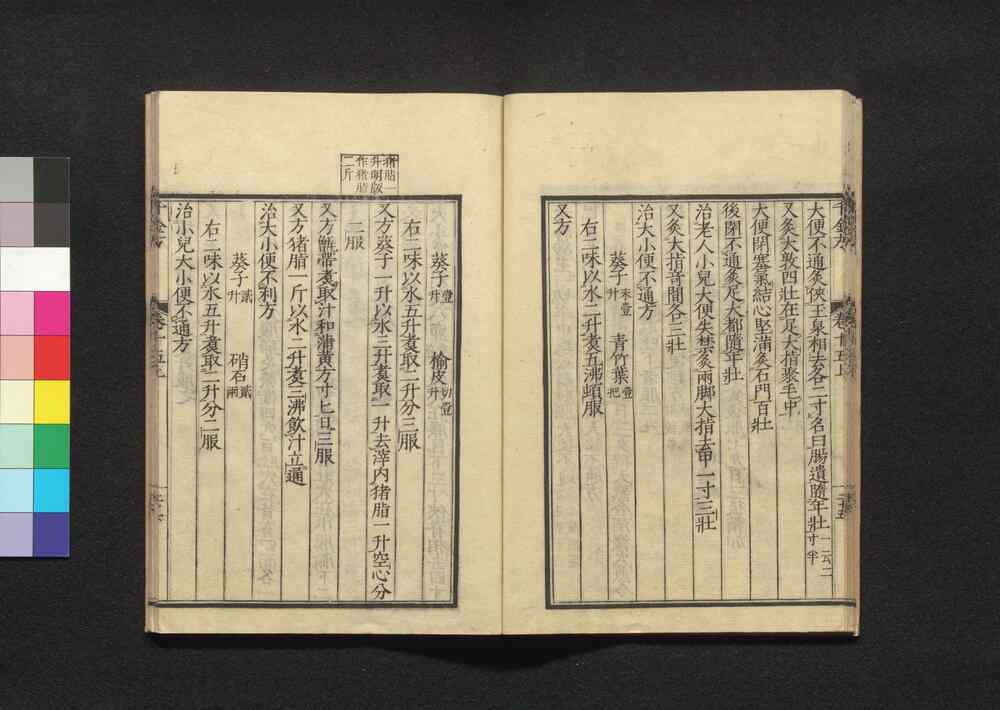 大便不通灸俠玉泉相去各二寸名曰腸遺隨年壯一云二寸半
又灸大敦四壯在足大指聚毛中
大便閉塞氣結心堅滿灸石門百壯
後閉不通灸足大都隨年壯
治老人小兒大便失禁灸兩脚大指去甲一寸三壯
又灸大指奇間各三壯
治大小便不通方
葵子末壹升 青竹葉壹把
右二味以水二升煑五沸頓服
又方
葵子壹升 榆皮切壹升
右二味以水五升煑取二升分三服
猪脂一
升明版
作猪脂
二斤
又方葵子一升以水三升煑取一升去滓内猪脂一升空心分
二服
又方無帶煑取汁和蒲黄方寸匕日三服
又方猪脂一斤以水二升煑三沸飲汁立通
治大小便不利方
葵子貳升 硝石貳兩
右二味以水五升煑取二升分二服
治小兒大小便不通方